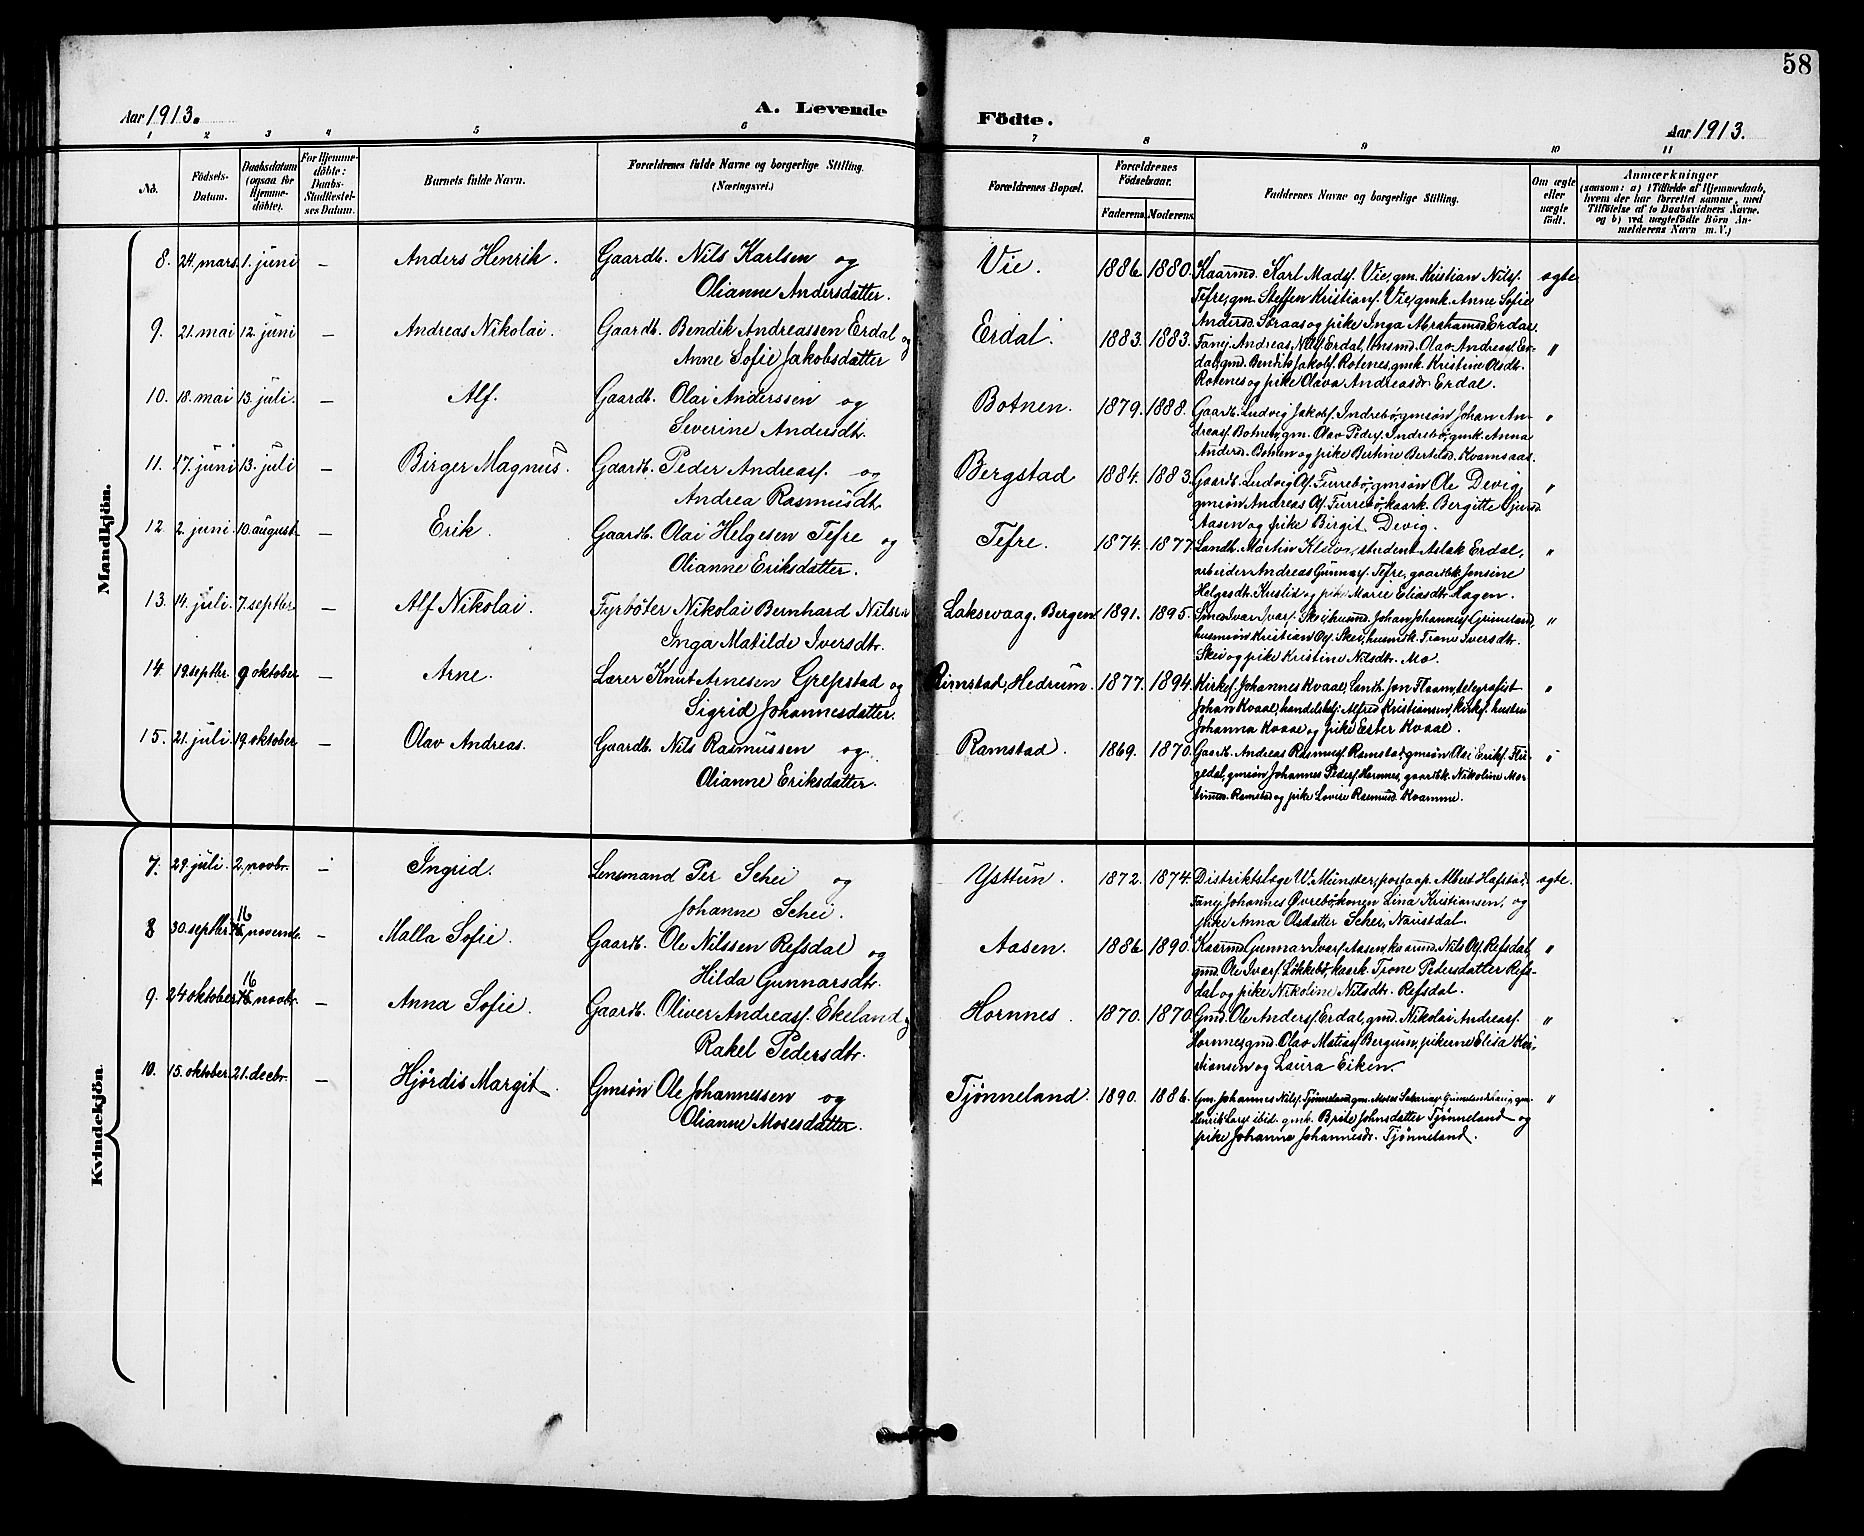 58
Aar 1913.
A. Levende
Födte.
Aar 1913.
1 2 3 4 5 6 7 8 9 10 11
No.
Födsels-
Datum.
Daabsdatum
(ogsaa for
Hjemme-
döbte).
For Hjemme-
döbte:
Daabs-
Stadfæstel-
ses Datum.
Barnets fulde Navn.
Forældrenes fulde Navne og borgerlige Stilling.
(Næringsvei.)
Forældrenes Bopæl.
Forældrenes
Födselsaar.
Faderens. Moderens.
Faddernes Navne og borgerlige Stilling.
Om ægte
eller
uægte
födt.
Anmærkninger
(saasom: a) i Tilfælde af Hjemmedaab,
hvem der har forrettet samme, med
Tilföielse af to Daabsvidners Navne,
og b) ved uægtefödte Börn An-
melderens Navn m. V.)
Mandkjön.
8. 24. mars. 1. juni – Anders Henrik. Gaardb. Nils Karlsen og
Olianne Andersdatter.
Vie. 1886. 1880. Kaarmd. Karl Madsf. Vie, gm. Kristian Nilsf.
Tefre, gm. Steffen Kristiansf. Vie, gmk. Anne Sofie
Andersd. Særaas og pike Inga Abrahamsd. Erdal.
ægte
9. 21. mai 12. juni – Andreas Nikolai. Gaardb. Bendik Andreassen Erdal og
Anne Sofie Jakobsdatter
Erdal. 1883. 1883. Fanej. Andreas Nilsf. Erdal, Olav Andreasf. Er-
dal, gmd. Bendik Jakobf. Rotenes, gmk. Kristine Olsdtr.
Rotenes og pike Olava Andreasdr. Erdal.
"
10. 18. mai 13. juli. – Alf. Gaardb. Olai Anderssen og
Severine Andersdt.
Botnen. 1879. 1888. Gaardb. Ludvig Jakobf. Indrebö, gmsön Johan An-
dreasf. Botnen, gm. Olav Pedersf. Indrebö, gmk. Anna
Andersd. Botnen og pike Bertine Bertelsd. Kvamsaas.
"
11. 17. juni 13. juli – Birger Magnus. Gaardb. Peder Andreasf. og
Andrea Rasmusdt.
Bergstad 1884. 1883. Gaardb. Ludvig Olf. Furrebö, gmsön Ole Devig,
gmsön Andreas Olf. Furrebö, kaark. Bergitte Gjersd.
Aasen og pike Birgit Devig.
"
12 2. juni 10. august – Erik. Gaardb. Olai Helgesen Tefre og
Olianne Eriksdatter.
Tefre. 1874. 1877. Landh. Martin Kleiva, student Aslak Erdal,
arbeider Andreas Gunnarf. Tefre, gaardbk. Jensine
Helgesdt. Kvstid og pike Marie Eliasdt. Hagen.
"
13. 14. juli. 7. septbr – Alf Nikolai. Fyrböter Nikolai Bernhard Nilsen
Inga Matilde Iversdtr.
Laksevaag, Bergen 1891. 1895. Smed Ivar Ivarf. Skei, husmd. Johan Johannesf. Grimeland,
husmsön Kristian Olf. Skei, husmk. Trone Iversdtr.
Skei og pike Kristine Nilsdtr. Mo.
"
14. 19. septbr. 9 oktober – Arne. Lærer Knut Arnesen Grepstad og
Sigrid Johannesdatter.
Rimstad, Hedrum. 1877. 1894. Kirkes. Johannes Kvaal, Landh. Jon Flaam, telegrafist
Johan Kvaal, handelsbetj. Alfred Kristiansen, kirkes. hustru
Johanna Kvaal og pike Ester Kvaal.
"
15. 21. juli 19. oktober – Olav Andreas. Gaardb. Nils Rasmussen og
Olianne Eriksdatter.
Ramstad. 1869. 1870. Gaardb. Andreas Rasmusf. Ramstad, gmsön Olai Eriksf. Fri-
gedal, gmsön Johannes Pedersf. Hornnes, gaardbk. Nikoline Mar-
tinusd. Ramstad og pike Lovise Rasmusd. Kvamme.
"
Kvindekjön.
7. 29. juli. 2. novbr. – Ingrid. Lensmand Per Schei og
Johanne Schei.
Ysttun. 1872. 1874. Distriktslæge W. Münster, postaap. Albert Hafstad,
Fanej. Johannes Övrebö, konen Lina Kristiansen, og
pike Anna Olsdatter Schei, Naustdal.
ægte.
8 30. septbr. 16 novembr. – Malla Sofie. Gaardb. Ole Nilssen Refsdal og
Hilda Gunnarsdtr.
Aasen. 1886. 1890. Kaarmd. Gunnar Ivarf. Aasen, kaarmd. Nils Olf. Refsdal,
gmd. Ole Ivarf. Lökkebö, kaark. Trone Pedersdatter Refs-
dal og pike Nikoline Nilsdtr. Refsdal.
"
9. 24 oktober 16 novbr. – Anna Sofie. Gaardb. Oliver Andreasf. Ekeland og
Rakel Pedersdtr.
Hornnes. 1870. 1870. Gmd. Ole Andersf. Erdal, gmd. Nikolai Andreasf.
Hornnes, gmd. Olav Matiasf. Bergum, pikerne Elisa Kri-
stiansen og Laura Eiken.
"
10. 15. oktober 21. decbr. – Hjördis Margit. Gmsön Ole Johannessen og
Olianne Mosesdatter.
Tjönneland. 1890. 1886. Gm. Johannes Nilsf. Tjönneland, gm. Moses Sakariasf. Grimelandhaug, gm.
Henrik Larsf. ibid. gmk. Brite Johnsdatter Tjönneland og
pike Johanna Johannesdr. Tjönneland.
"